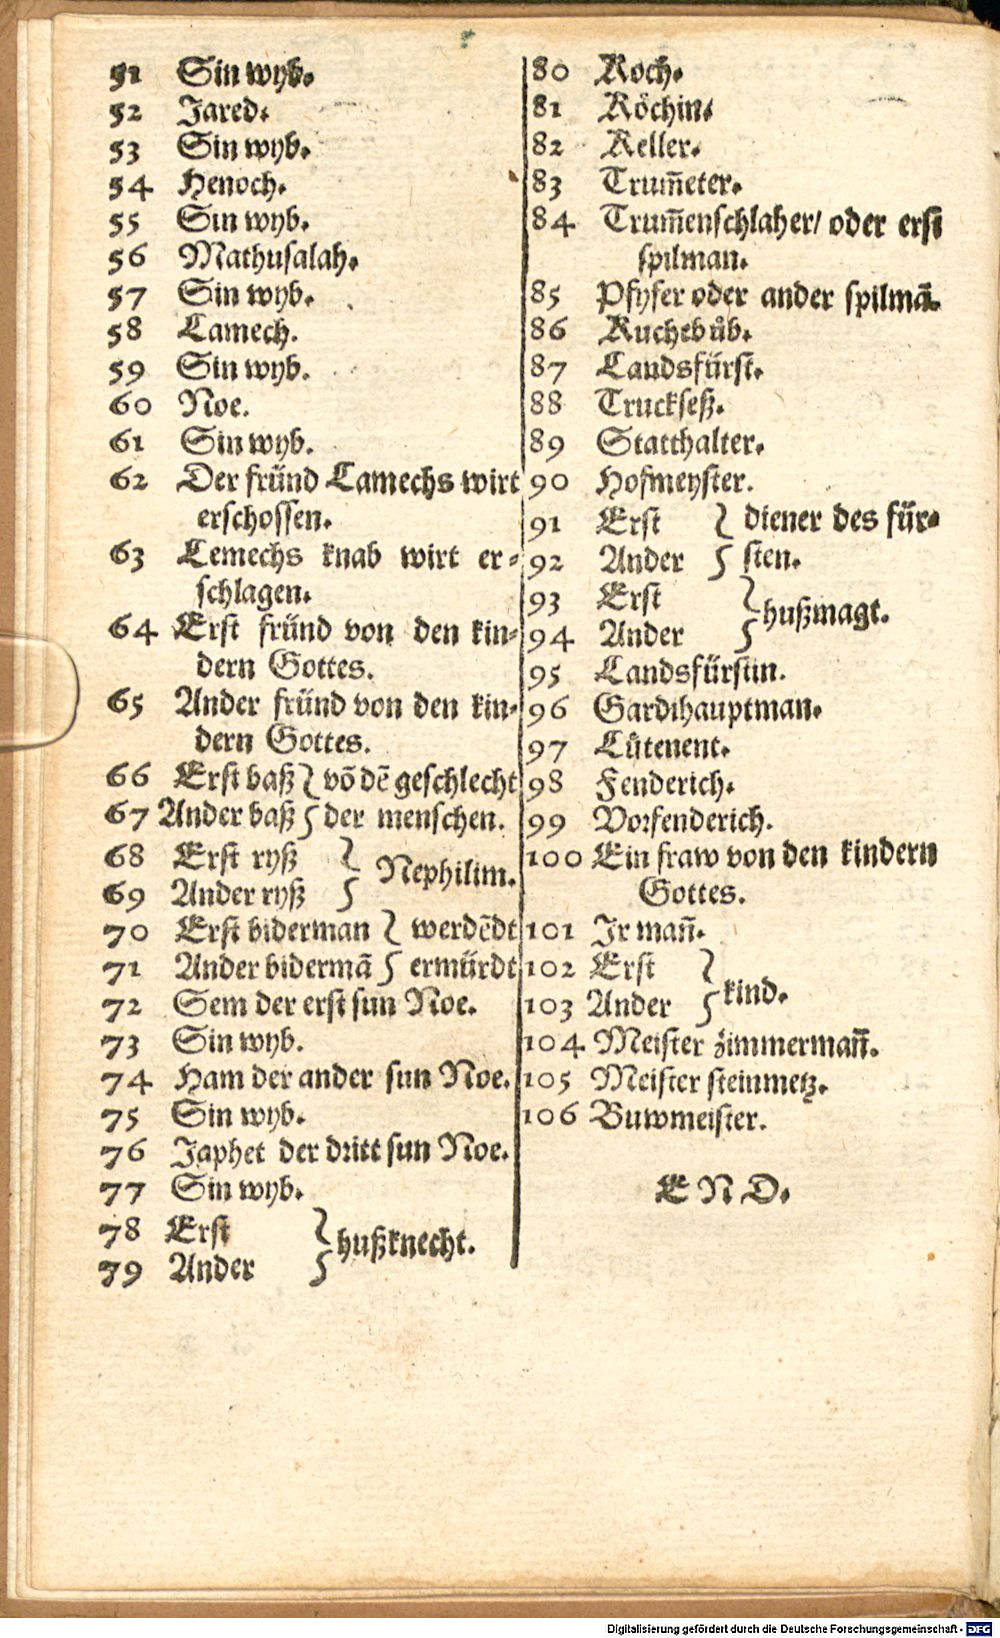 51 Sin wyb.
52 Jared.
53 Sin wyb.
54 Henoch.
55 Sin wyb.
56 Mathusalah.
57 Sin wyb.
58 Lamech.
59 Sin wyb.
60 Noe.
61 Sin wyb.
62 Der fründ Lamechs wirt
erschossen.
63 Lemechs knab wirt er-
schlagen.
64 Erst fründ von den kin-
dern Gottes.
65 Ander fründ von den kin-
dern Gottes.
66 Erst baß } võ dẽ geschlecht
67 Ander baß } der menschen.
68 Erst ryß }
Nephilim.
69 Ander ryß }
70 Erst biderman } werdẽdt
71 Ander bidermã } ermürdt
72 Sem der erst sun Noe.
73 Sin wyb.
74 Ham der ander sun Noe.
75 Sin wyb.
76 Japhet der dritt sun Noe.
77 Sin wyb.
78 Erst }
hußknecht.
79 Ander }
80 Koch.
81 Köchin.
82 Keller.
83 Trum̃eter.
84 Trum̃enschlaher/ oder erst
spilman.
85 Pfyfer oder ander spilmã.
86 Kuchebůb.
87 Landsfürst.
88 Truckseß.
89 Statthalter.
90 Hofmeyster.
91 Erst } diener des für-
92 Ander } sten.
93 Erst }
hußmagt.
94 Ander }
95 Landsfürstin.
96 Gardihauptman.
97 Lütenent.
98 Fenderich.
99 Vorfenderich.
100 Ein fraw von den kindern
Gottes.
101 Ir man̄.
102 Erst }
kind.
103 Ander }
104 Meister zimmerman̄.
105 Meister steinmetz.
106 Buwmeister.
END.
Digitalisierung gefördert durch die Deutsche Forschungsgemeinschaft - DFG